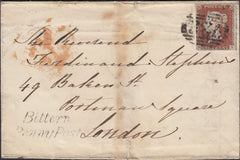 The Reverend
Ferdinand Stephens
49 Baker St
Portman Square
London.
Bittern
Penny Post